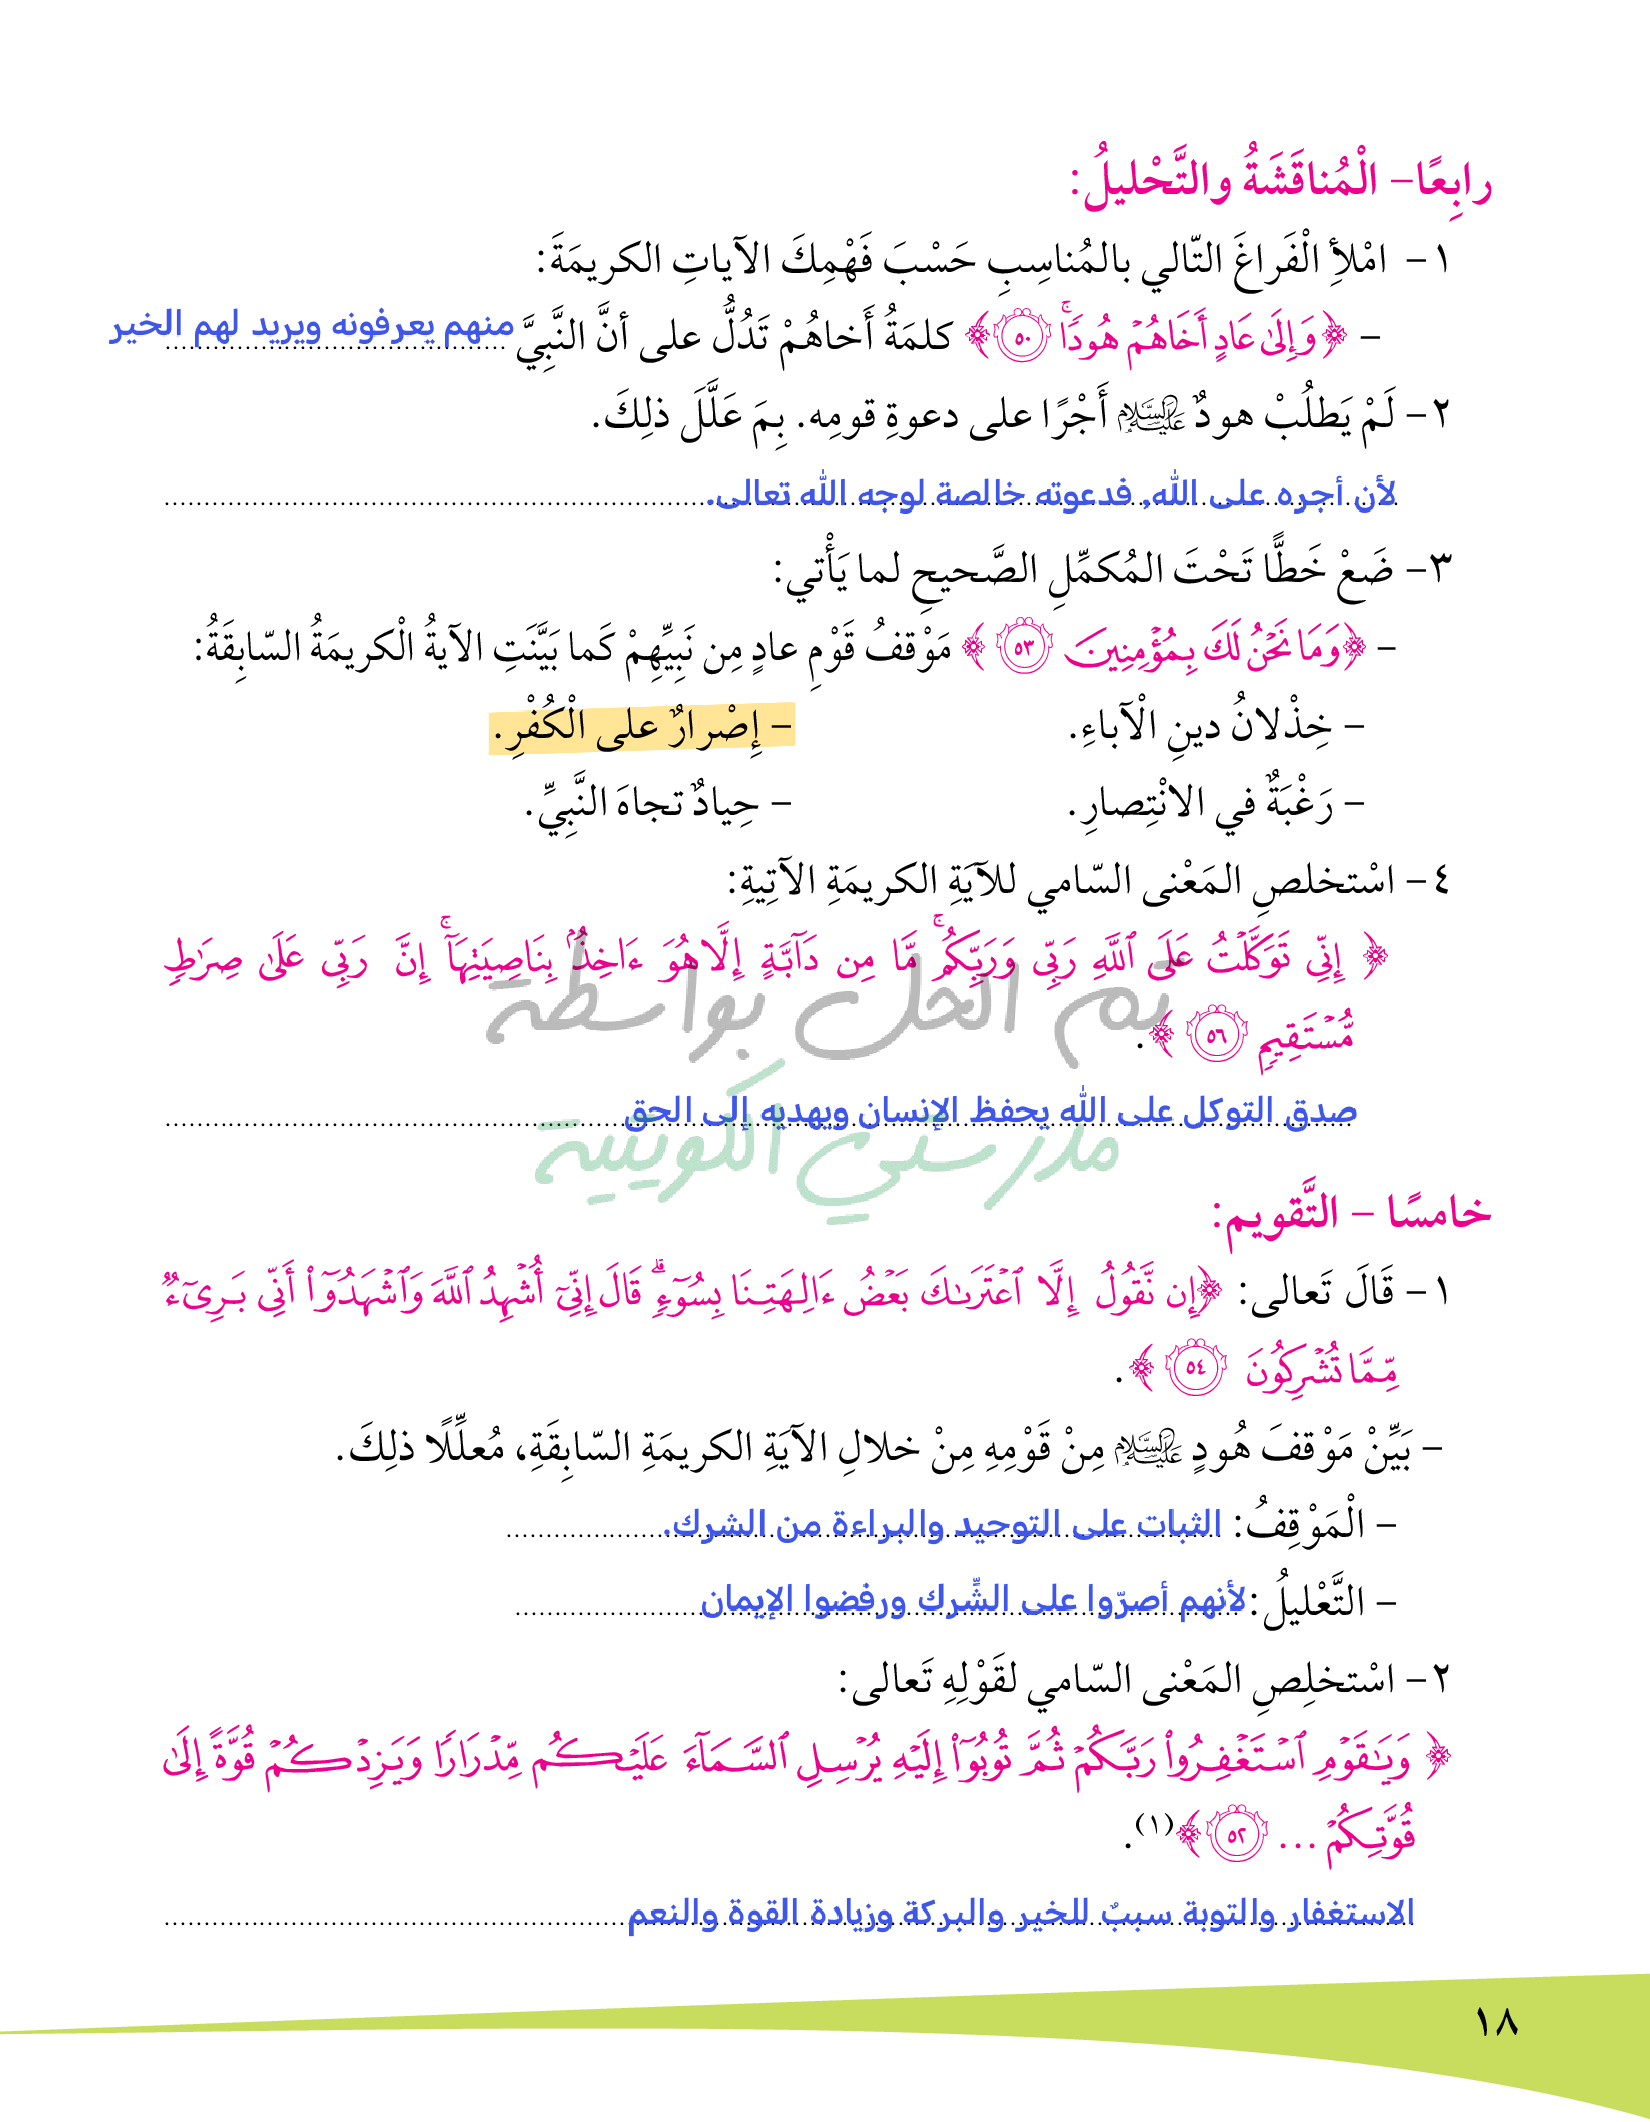 رابِعًا- الْمُناقَشَةُ والتَّحْليلُ:
١- امْلأِ الْفَراغَ التّالي بالمُناسِبِ حَسْبَ فَهْمِكَ الآياتِ الكريمَةَ:
- ﴿وَإِلَىٰ عَادٍ أَخَاهُمْ هُودًاۚ ٥٠﴾ كلمَةُ أَخاهُمْ تَدُلُّ على أنَّ النَّبِيَّ منهم يعرفونه ويريد لهم الخير
٢- لَمْ يَطلُبْ هودٌ عليه السلام أَجْرًا على دعوةِ قومِه. بِمَ عَلَّلَ ذلِكَ.
لأن أجره على الله, فدعوته خالصة لوجه الله تعالى.
٣- ضَعْ خَطًّا تَحْتَ المُكمِّلِ الصَّحيحِ لما يَأْتي:
- ﴿وَمَا نَحْنُ لَكَ بِمُؤْمِنِينَ ٥٣﴾ مَوْقفُ قَوْمِ عادٍ مِن نَبِيِّهِمْ كَما بَيَّنَتِ الآيةُ الْكريمَةُ السّابِقَةُ:
- خِذْلانُ دينِ الْآباءِ. - إِصْرارٌ على الْكُفْرِ.
- رَغْبَةٌ في الانْتِصارِ. - حِيادٌ تجاهَ النَّبِيِّ.
٤- اسْتخلصِ المَعْنى السّامي للآيَةِ الكريمَةِ الآتِيةِ:
﴿ إِنِّي تَوَكَّلْتُ عَلَى ٱللَّهِ رَبِّي وَرَبِّكُمۚ مَّا مِن دَآبَّةٍ إِلَّا هُوَ ءَاخِذٌۢ بِنَاصِيَتِهَآۚ إِنَّ رَبِّي عَلَىٰ صِرَٰطٍ
مُّسْتَقِيمٍ ٥٦ ﴾.
تم الحل بواسطة
صدق التوكل على الله يحفظ الإنسان ويهديه إلى الحق
مدرستي الكويتية
خامسًا - التَّقويم:
١- قَالَ تَعالى: ﴿إِن نَّقُولُ إِلَّا ٱعْتَرَىٰكَ بَعْضُ ءَالِهَتِنَا بِسُوٓءٍۗ قَالَ إِنِّيٓ أُشْهِدُ ٱللَّهَ وَٱشْهَدُوٓا۟ أَنِّي بَرِيٓءٌ
مِّمَّا تُشْرِكُونَ ٥٤ ﴾.
- بَيِّنْ مَوْقفَ هُودٍ عليه السلام مِنْ قَوْمِهِ مِنْ خلالِ الآيَةِ الكريمَةِ السّابِقَةِ، مُعلِّلًا ذلِكَ.
- الْمَوْقِفُ: الثبات على التوحيد والبراءة من الشرك.
- التَّعْليلُ: لأنهم أصرّوا على الشِّرك ورفضوا الإيمان
٢- اسْتخلِصِ المَعْنى السّامي لقَوْلِهِ تَعالى:
﴿ وَيَـٰقَوْمِ ٱسْتَغْفِرُوا۟ رَبَّكُمْ ثُمَّ تُوبُوٓا۟ إِلَيْهِ يُرْسِلِ ٱلسَّمَآءَ عَلَيْكُم مِّدْرَارًا وَيَزِدْكُمْ قُوَّةً إِلَىٰ
قُوَّتِكُمْ ... ٥٢ ﴾(١).
الاستغفار والتوبة سببٌ للخير والبركة وزيادة القوة والنعم
١٨